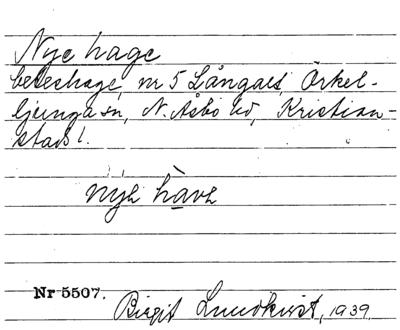 Nye hage
beteshage, nr 5 Långalt, Örkel-
ljunga sn, N. Åsbo hd, Kristian-
stads l.
nýə hàvə
Nr 5507.
Birgit Lundkvist, 1939.